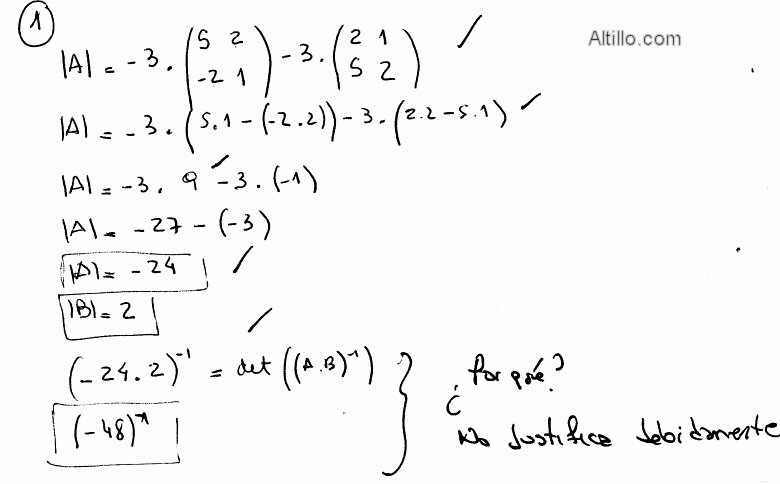 1
Altillo.com
|A| = -3 . (5 2 -2 1) - 3 . (2 1 5 2) ✓
|A| = -3 . (5.1 - (-2.2)) - 3 . (2.2 - 5.1) ✓
|A| = -3 . 9 ✓ - 3 . (-1)
|A| = -27 - (-3)
|A| = -24 ✓
|B| = 2
(-24.2)⁻¹ = det ((A.B)⁻¹) ✓
¿Por qué?
(-48)⁻¹
No justifica debidamente